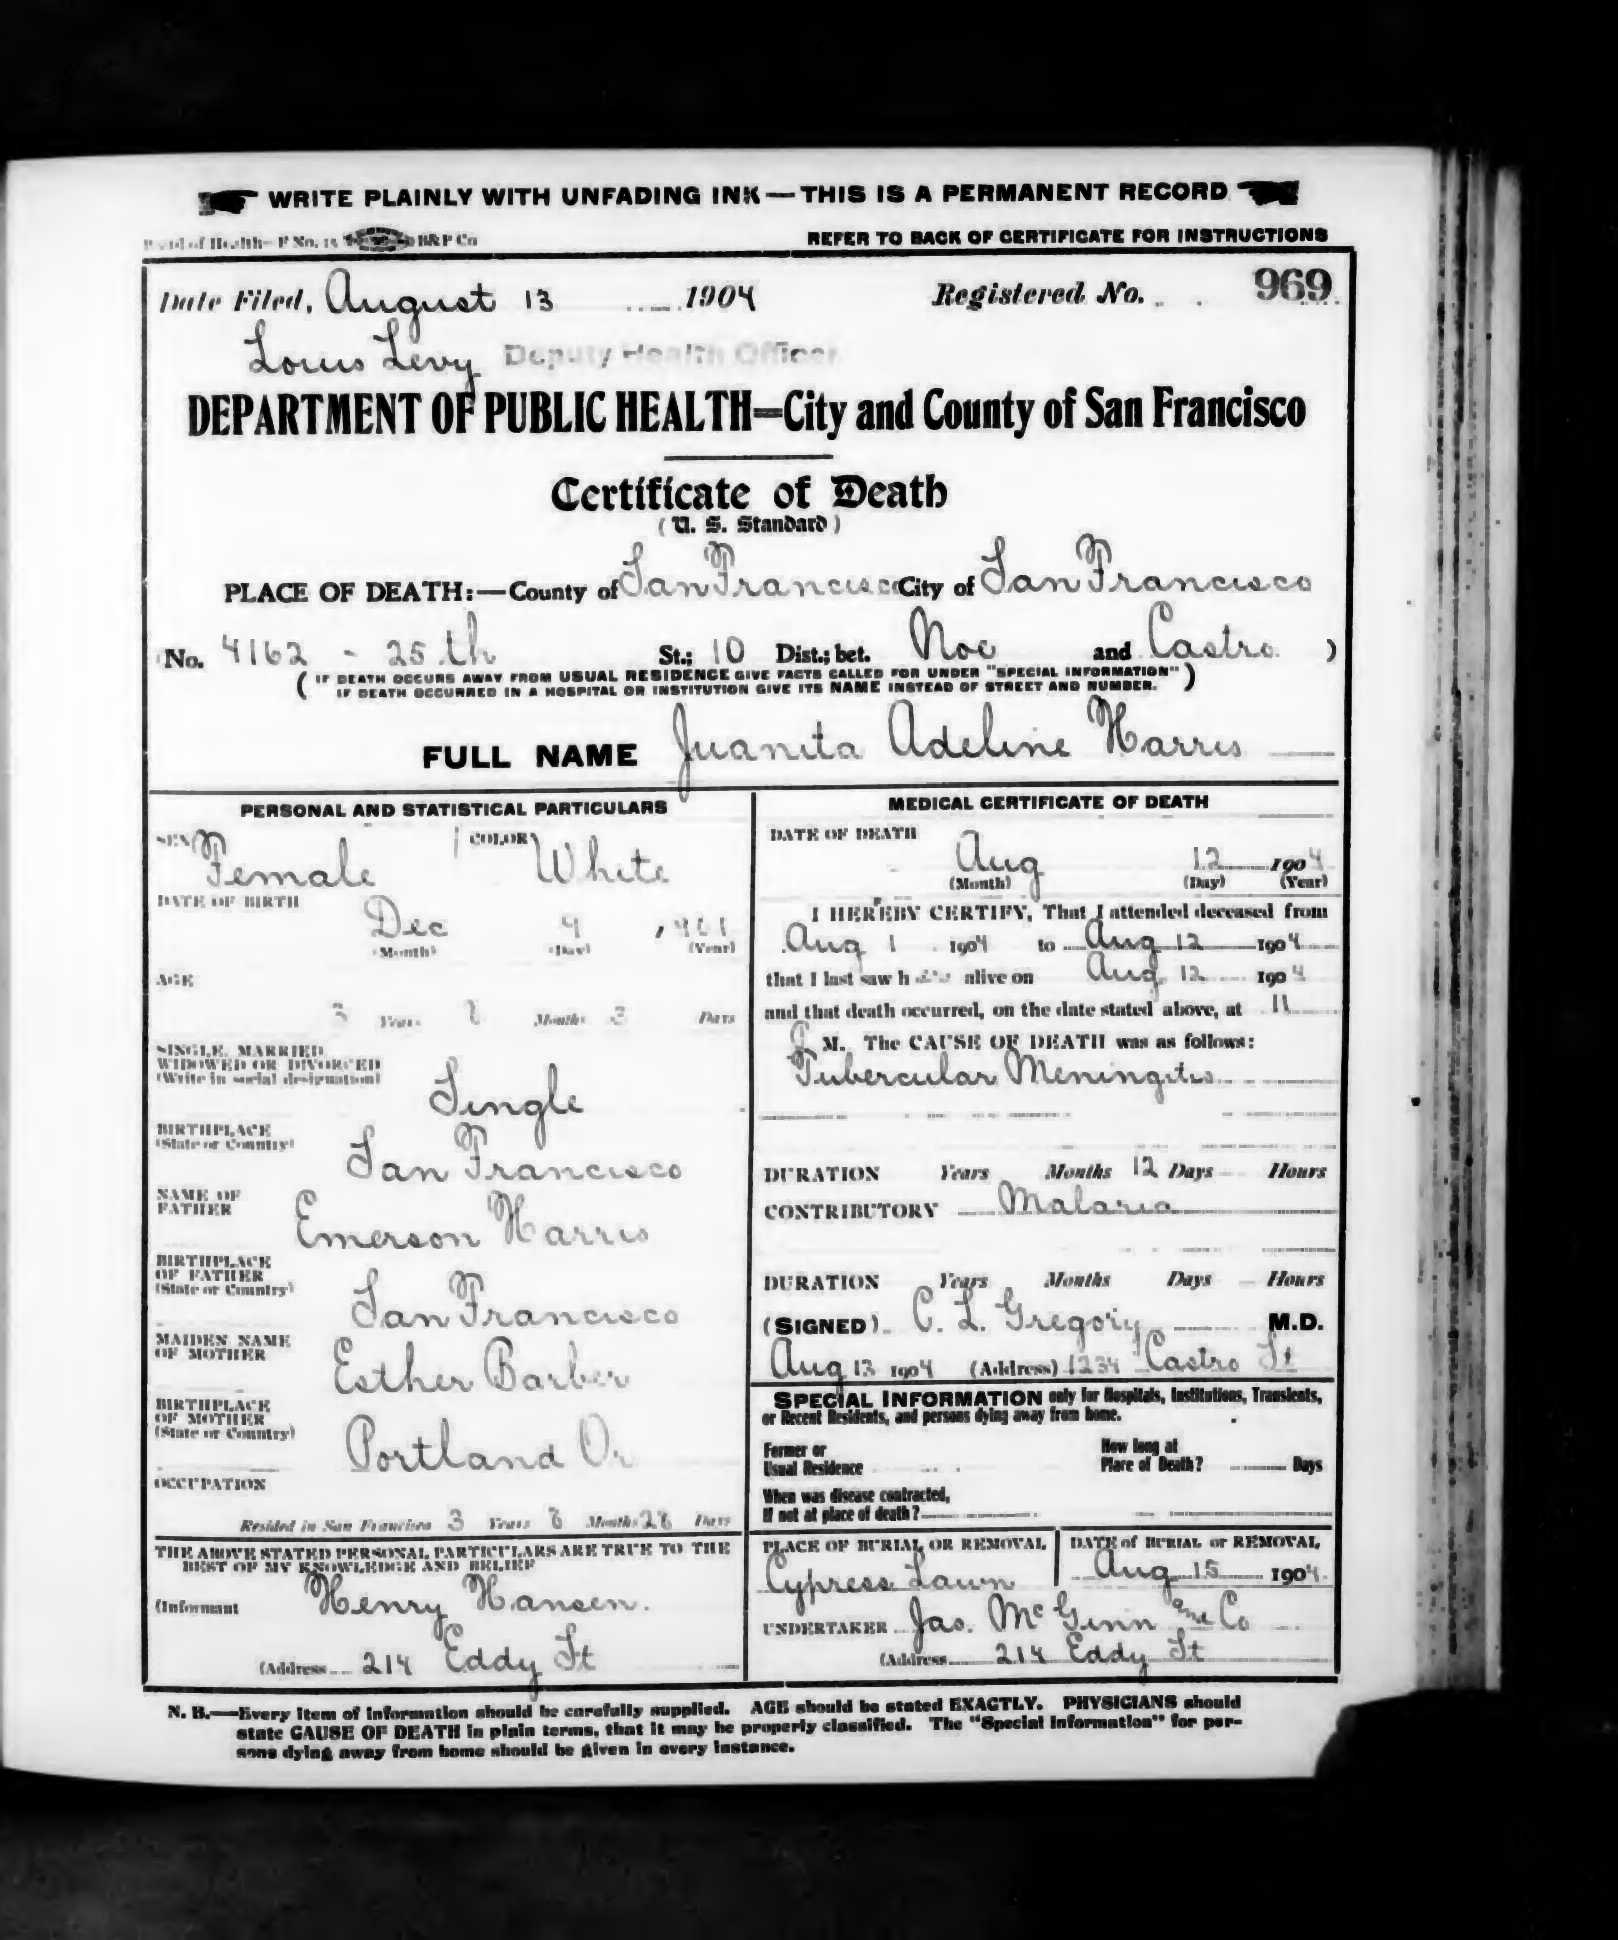 WRITE PLAINLY WITH UNFADING INK—THIS IS A PERMANENT RECORD
Board of Health—F No. 15 B&P Co
REFER TO BACK OF CERTIFICATE FOR INSTRUCTIONS
Date Filed, August 13 1904 Registered No. 969
Louis Levy Deputy Health Officer
DEPARTMENT OF PUBLIC HEALTH=City and County of San Francisco
Certificate of Death
(U. S. Standard)
PLACE OF DEATH:—County of San Francisco City of San Francisco
(No. 4162 - 25th St.; 10 Dist.; bet. Noe and Castro )
( IF DEATH OCCURS AWAY FROM USUAL RESIDENCE GIVE FACTS CALLED FOR UNDER "SPECIAL INFORMATION" )
( IF DEATH OCCURRED IN A HOSPITAL OR INSTITUTION GIVE ITS NAME INSTEAD OF STREET AND NUMBER. )
FULL NAME Juanita Adeline Harris
PERSONAL AND STATISTICAL PARTICULARS
SEX Female COLOR White
DATE OF BIRTH
Dec 9
(Month) (Day) (Year)
AGE
3 Years 8 Months 3 Days
SINGLE, MARRIED,
WIDOWED OR DIVORCED
(Write in social designation)
Single
BIRTHPLACE
(State or Country)
San Francisco
NAME OF
FATHER
Emerson Harris
BIRTHPLACE
OF FATHER
(State or Country)
San Francisco
MAIDEN NAME
OF MOTHER
Esther Barber
BIRTHPLACE
OF MOTHER
(State or Country)
Portland Or
OCCUPATION
Resided in San Francisco 3 Years 8 Months 28 Days
THE ABOVE STATED PERSONAL PARTICULARS ARE TRUE TO THE
BEST OF MY KNOWLEDGE AND BELIEF
(Informant Henry Hansen.
(Address 214 Eddy St
MEDICAL CERTIFICATE OF DEATH
DATE OF DEATH
Aug 12 1904
(Month) (Day) (Year)
I HEREBY CERTIFY, That I attended deceased from
Aug 1 1904 to Aug 12 1904
that I last saw h alive on Aug 12 1904
and that death occurred, on the date stated above, at 11
P M. The CAUSE OF DEATH was as follows:
Tubercular Meningitis
DURATION Years Months 12 Days Hours
CONTRIBUTORY Malaria
DURATION Years Months Days Hours
(SIGNED) C. L. Gregory M.D.
Aug 13 1904 (Address) 1234 Castro St
SPECIAL INFORMATION only for Hospitals, Institutions, Transients,
or Recent Residents, and persons dying away from home.
Former or
Usual Residence
How long at
Place of Death? Days
When was disease contracted,
If not at place of death?
PLACE OF BURIAL OR REMOVAL
Cypress Lawn
DATE of BURIAL or REMOVAL
Aug 15 1904
UNDERTAKER Jas. McGinn and Co
(Address 214 Eddy St
N. B.—Every item of information should be carefully supplied. AGE should be stated EXACTLY. PHYSICIANS should
state CAUSE OF DEATH in plain terms, that it may be properly classified. The "Special Information" for per-
sons dying away from home should be given in every instance.